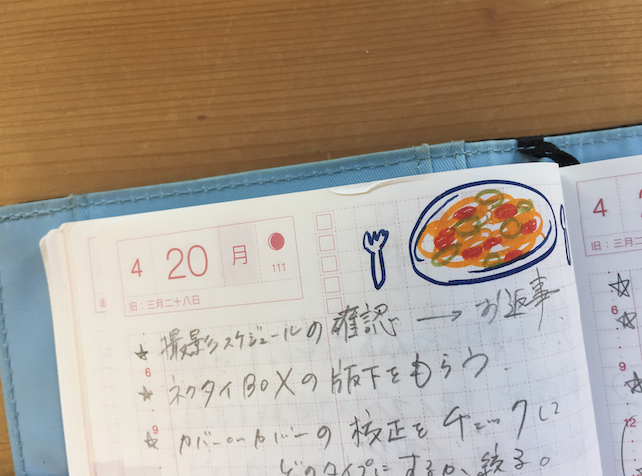 4 20 月
111
旧:三月二十八日
☆ 撮影スケジュールの確認 → お返事
6
☆ ネクタイBOXの版下をもらう.
9
☆ カバーonカバーの校正をチェックして
どのタイプにするか、絞る。
4
旧:三
6
9
12